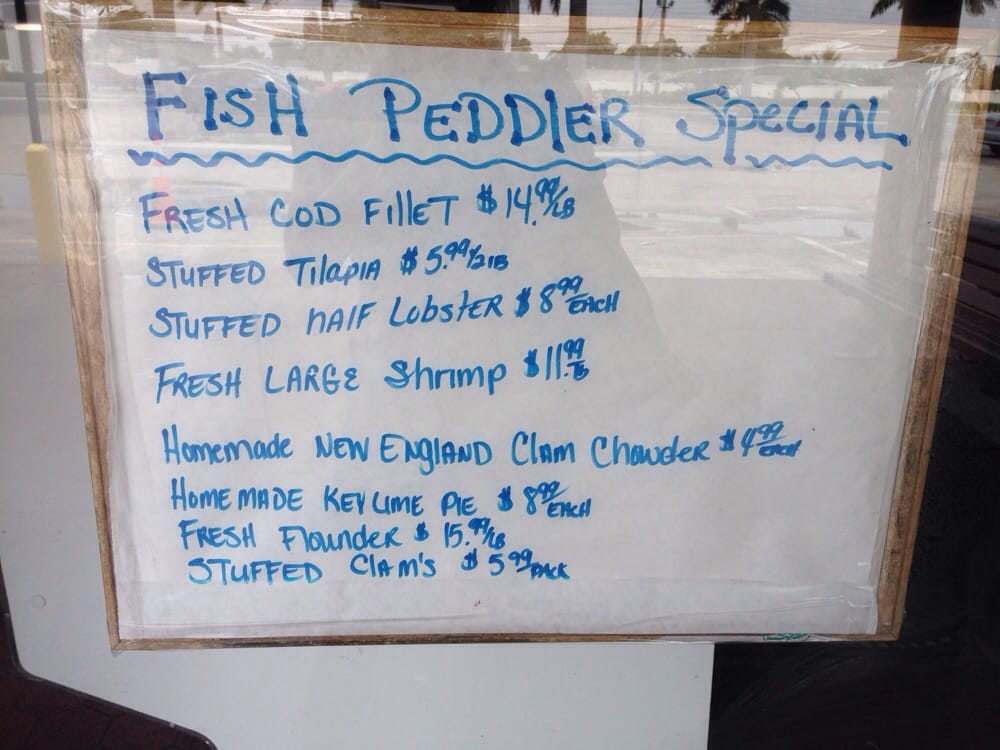 FISH PEDDLER SPECIAL
FRESH COD FILLET $14.99/LB
STUFFED TilapiA $5.99 1/2 LB
STUFFED HALF LobsTER $8.99 EACH
FRESH LARGE Shrimp $11.99 LB
Homemade NEW ENGLAND Clam Chowder $4.99 EACH
HOMEMADE KEY LIME PIE $8.99 EACH
FRESH Flounder $15.99/LB
STUFFED Clam's $5.99 PACK